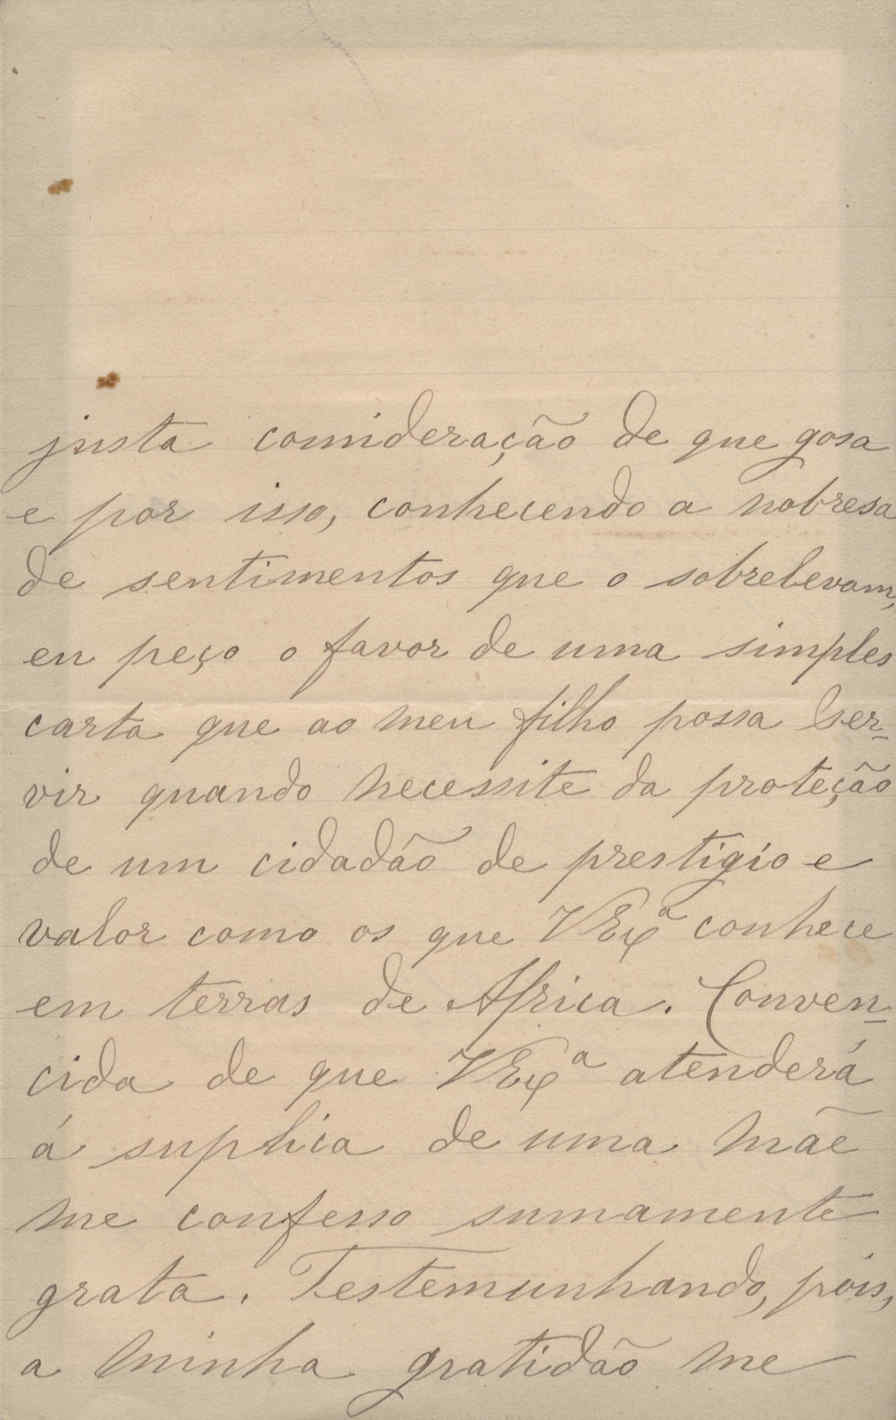 justa consideração de que gosa
e por isso, conhecendo a nobresa
de sentimentos que o sobrelevam,
eu peço o favor de uma simples
carta que ao meu filho possa ser-
vir quando necessite da proteção
de um cidadão de prestigio e
valor como os que VExª conhece
em terras de Africa. Conven-
cida de que VExª atenderá
á suplica de uma mãe
me confesso sumamente
grata. Testemunhando, pois,
a minha gratidão me